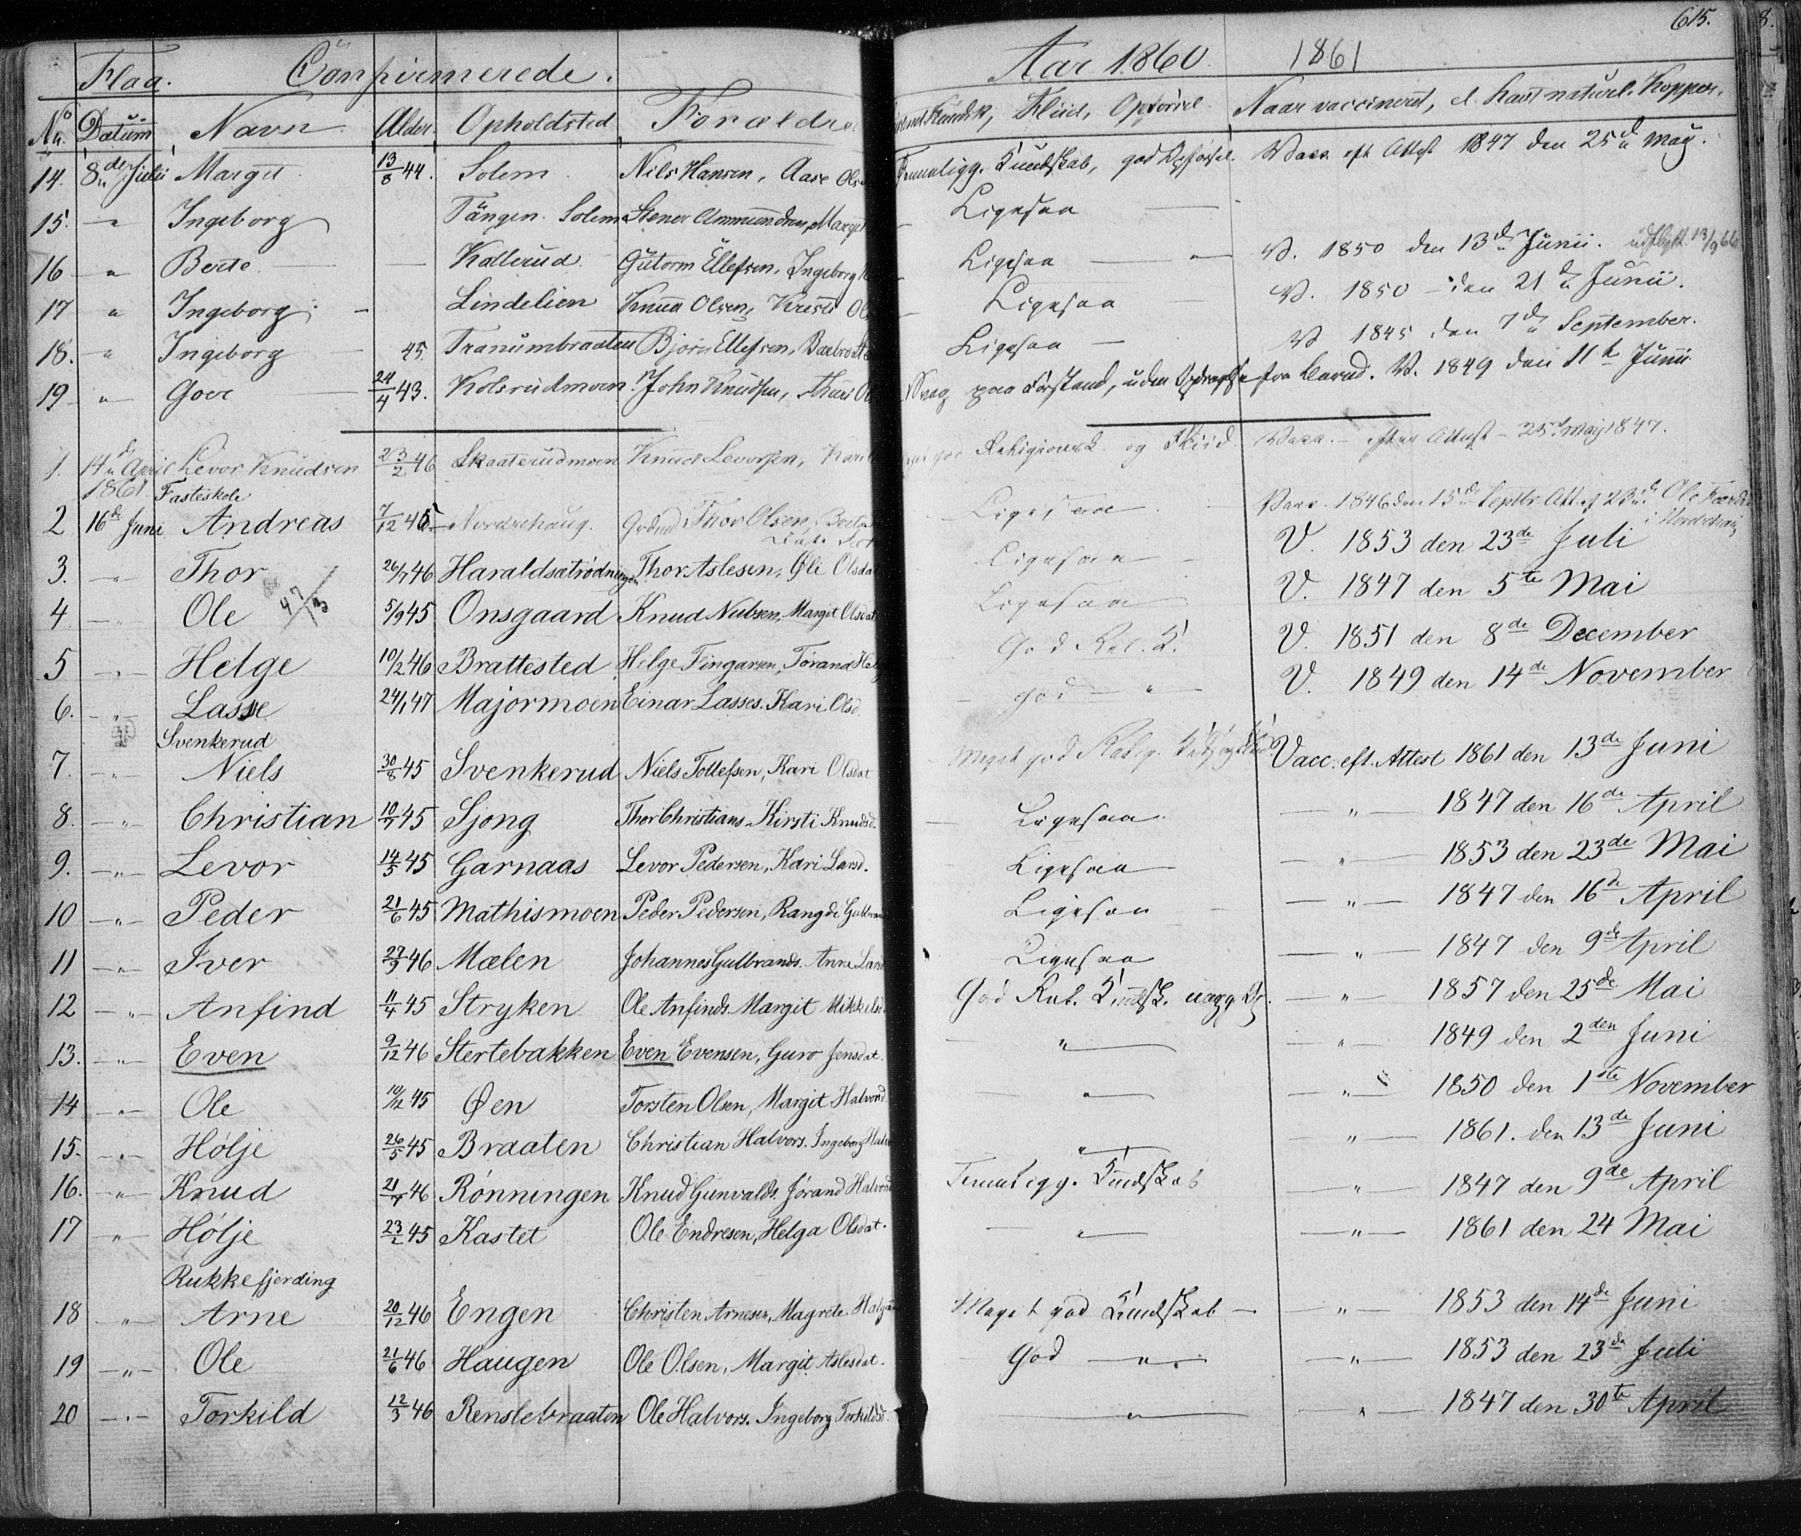 615.
Flaa. Confirmerede. Aar 1860. 1861
No Datum Navn Alder. Opholdsted Forældre Kundsk, Fliid, Opførsel. Naar vaccineret, el. havt naturl. Kopper.
14. 8de Julii Margit 13/8 44. Solem Nils Hansen, Aase Temmeligg. Kundskab, god Opførsel. Vacc. eft Attest 1847 den 25de May.
15. " Ingeborg Tangen. Solem Stener Ammundsen, Margit Ligesaa
16 " Berte Kollerud. Gutorm Ellefsen, Ingeborg Ligesaa " V. 1850 den 13de Junii. udflytt 13/9 66
17 " Ingeborg Lindelien Knud Olsen, Kirsti Ligesaa V. 1850 den 21de Junii.
18. " Ingeborg 45. Tranumbraaten Bjørn Ellefsen, Barbro Ligesaa V 1845 den 7de September.
19 " Goer 24/4 43. Kolsrudmoen John Knudsen, Svag paa Forstand, uden V. 1849 den 11te Junii
1. 14de April 1861 Levor Knudsen 23/2 46 Skaaterudmoen Knud Levorsen, Kari god Religionsk. og Fliid Vacc. efter Attest 25de May 1847.
Fasteskole
2 16de Juni Andreas 7/12 45 Nordrehaug. Thor Olsen, Ligesaa Vacc. 1846 den 15de Septbr. Att. af 23de
3. " Thor 26/7 46 Haraldsetrødningen Thor Aslesen, Øli Olsdat Ligesaa V. 1853 den 23de Juli
4 " Ole 5/9 45 Onsgaard Knud Nubsen, Margit Olsdat Ligesaa V. 1847 den 5te Mai
5 " Helge 10/2 46 Brattested Helge Fingarsen, Torand God Rel. K. V. 1851 den 8de December
6. " Lasse 24/1 47 Majormoen Einar Lasses. Kari Olsd. God " V. 1849 den 14de November
Svenkerud
7. " Niels 30/8 45 Svenkerud Niels Tollefsen, Kari Olsdat Meget god Vacc. eft. Attest 1861 den 13de Juni
8. " Christian 10/7 45 Sjong Thor Christians. Kirsti Knudsd. Ligesaa. " 1847 den 16de April
9. " Levor 14/5 45 Garnaas Levor Pedersen, Kari Larsd. Ligesaa " 1853 den 23de Mai
10 " Peder 21/6 45 Mathismoen Peder Pedersen, Rangdi Ligesaa " 1847 den 16de April
11 " Iver 27/9 46 Mælen Johannes Gulbrands. Anne Ligesaa " 1847 den 9de April
12 " Anfind 11/4 45 Stryken Ole Anfinds. Margit God Rel. Kundsk. " 1857 den 25de Mai
13. " Even 9/12 46 Stertebakken Even Evensen, Guro Jensdat. " " 1849 den 2den Juni
14 " Ole 10/12 45 Øen Torsten Olsen, Margit Halvord. " " 1850 den 1ste November
15. " Hølje 26/5 45 Braaten Christian Halvors. Ingeborg " " 1861. den 13de Juni
16. " Knud 21/7 46 Rønningen Knud Gunvalds. Jørand Halvord Temmeligg. Kundskab " 1847 den 9de April
17 " Hølje 23/2 45 Kastet Ole Endresen, Helga Olsdat. " " 1861 den 24 Mai
Rukkefjerding
18 " Arne 20/12 46 Engen Christen Arnesen, Magrete Meget god Kundskab " 1853 den 14de Juni
19 " Ole 21/6 46 Haugen Ole Olsen, Margit Aslesdat. God " " 1853 den 23de Juli
20 " Torkild 12/3 46 Renslebraaten Ole Halvors. Ingeborg Torkildsd. " " 1847 den 30te April